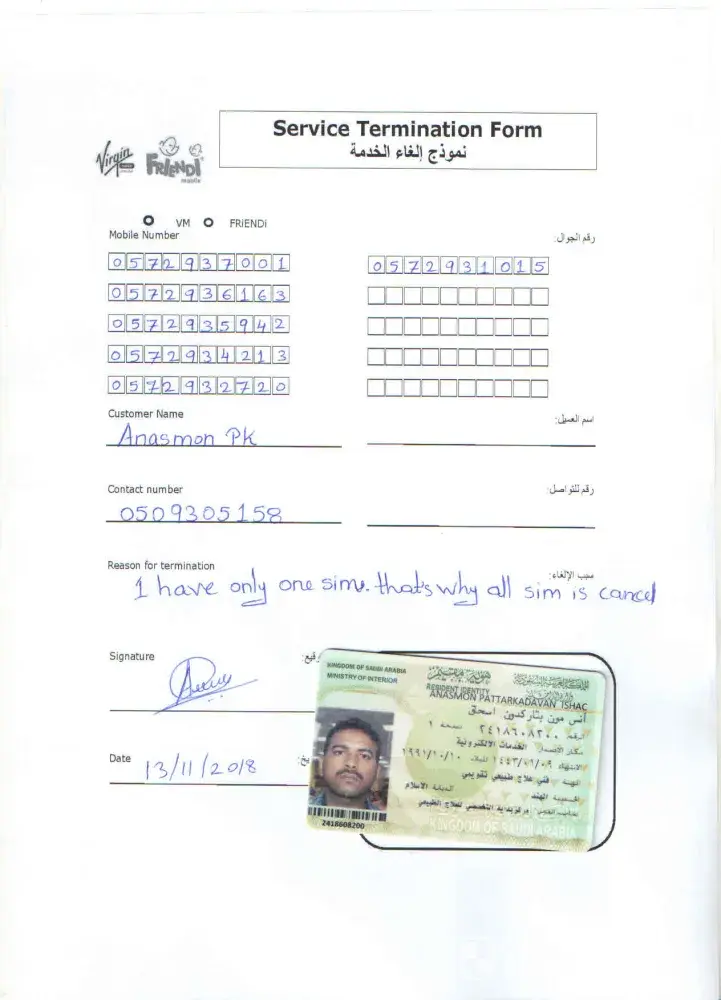 Service Termination Form
نموذج إلغاء الخدمة
Virgin
FRiENDi
mobile
VM FRiENDi
Mobile Number رقم الجوال:
0572937001 0572931015
0572936163
0572935942
0572934213
0572932720
Customer Name اسم العميل:
Anasmon PK
Contact number رقم للتواصل:
0509305158
Reason for termination سبب الإلغاء:
I have only one sim. that's why all sim is cancel
Signature
KINGDOM OF SAUDI ARABIA
MINISTRY OF INTERIOR
RESIDENT IDENTITY
ANASMON PATTARKADAVAN ISHAC
أنس مون بتاركدون اسحاق
٢٤١٨٦٠٨٢٠٠ نسخة ١
مكان الإصدار الخدمات الالكترونية
الانتهاء ١٤٤٣/٠١/٠٩ ١٩٩١/١٠/١٠
المهنة فني علاج طبيعي تقويمي
الهند الديانة الاسلام
KINGDOM OF SAUDI ARABIA
2418608200
Date 13/11/2018